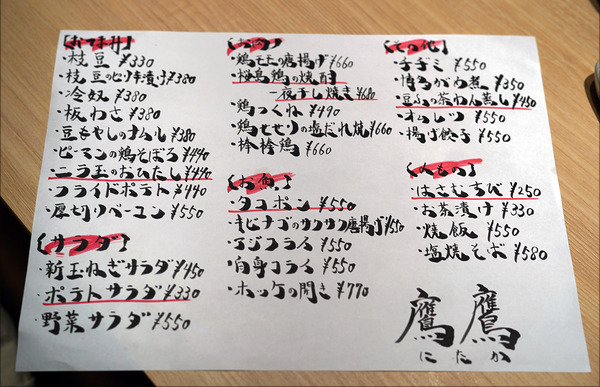 【おつまみ】
・枝豆 ¥330
・枝豆のピリ辛漬け ¥380
・冷奴 ¥380
・板わさ ¥380
・豆もやしのナムル ¥380
・ピーマンの鶏そぼろ ¥440
・ニラ玉のおひたし ¥440
・フライドポテト ¥440
・厚切りベーコン ¥550
【サラダ】
・新玉ねぎサラダ ¥450
・ポテトサラダ ¥330
・野菜サラダ ¥550
・鶏モモの唐揚げ ¥660
・桜島鶏の焼酎
一夜干し焼き ¥680
・鶏つくね ¥490
・鶏セセリの塩だれ焼 ¥660
・棒棒鶏 ¥660
【お魚】
・タコポン ¥550
・キビナゴのサクサク唐揚げ ¥550
・アジフライ ¥550
・白身フライ ¥550
・ホッケの開き ¥770
【その他】
・チヂミ ¥550
・博多がめ煮 ¥350
・豆ふの茶わん蒸し ¥450
・オムレツ ¥550
・揚げ餃子 ¥550
【〆もの】
・はさむすび ¥250
・お茶漬け ¥330
・焼飯 ¥550
・塩焼そば ¥580
鷹鷹
にたか